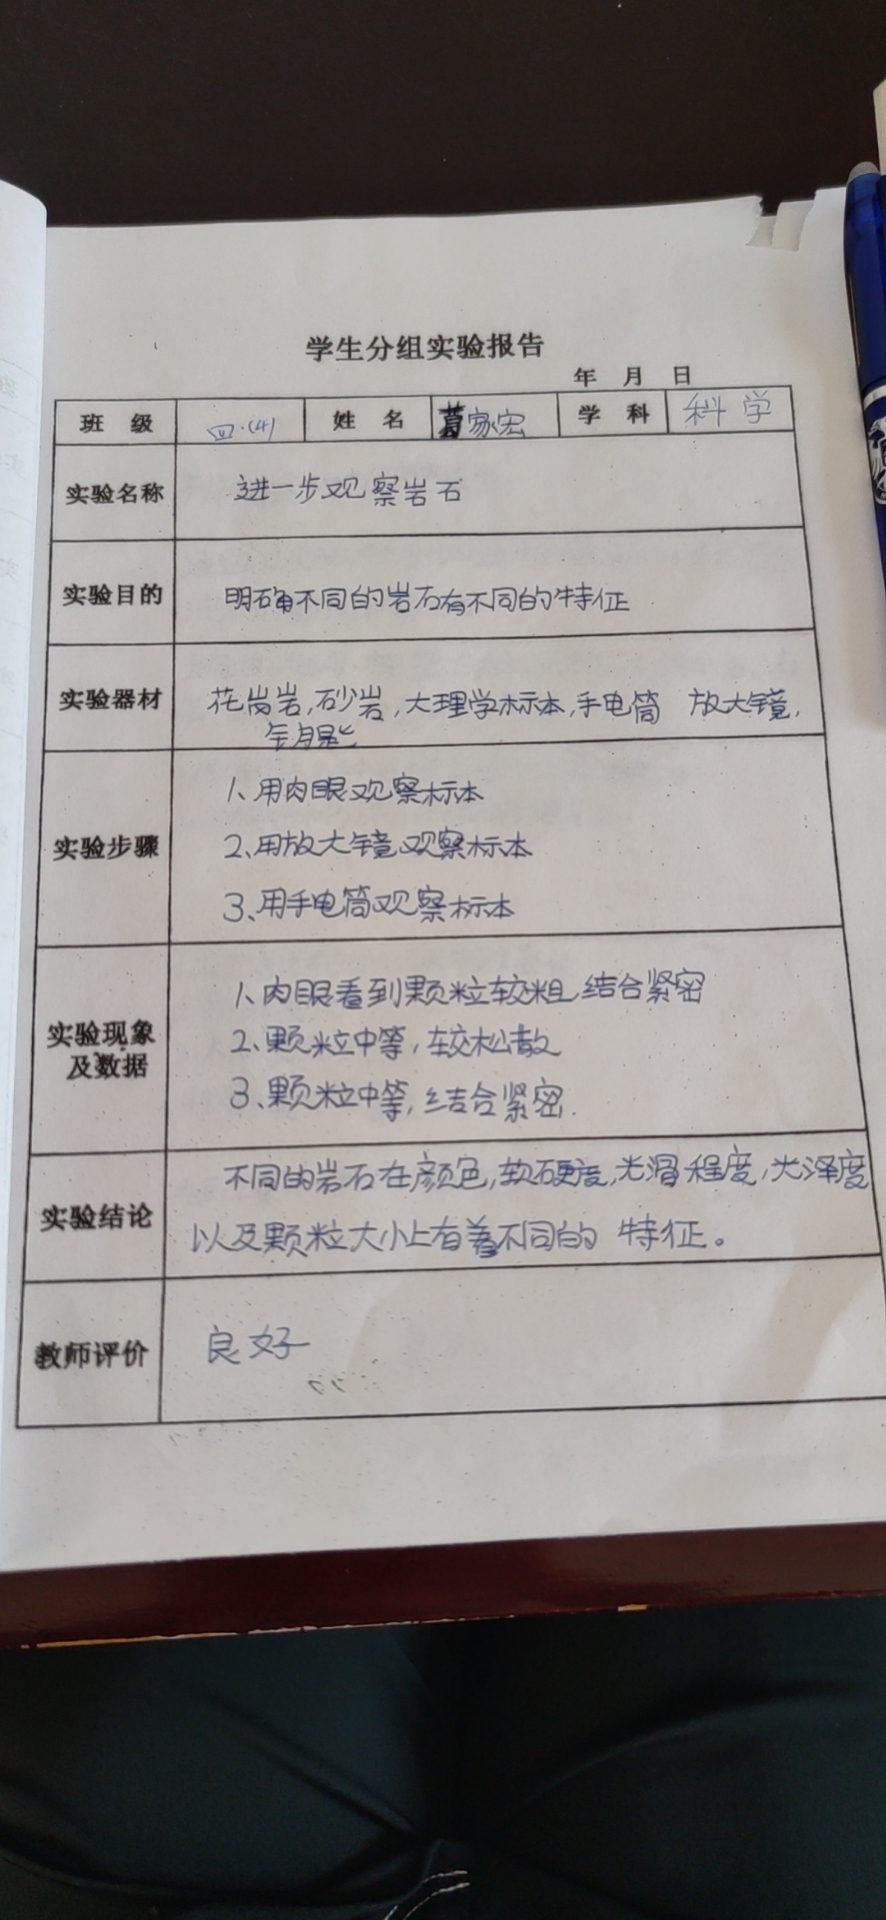 学生分组实验报告
年 月 日
班 级 四.(4) 姓 名 葛家宏 学 科 科学
实验名称 进一步观察岩石
实验目的 明确不同的岩石有不同的特征
实验器材 花岗岩,砂岩,大理学标本,手电筒 放大镜,
钥匙
实验步骤 1、用肉眼观察标本
2、用放大镜观察标本
3、用手电筒观察标本
实验现象及数据 1、肉眼看到颗粒较粗结合紧密
2、颗粒中等,较松散
3、颗粒中等,结合紧密.
实验结论 不同的岩石在颜色,软硬度,光滑程度,光泽度
以及颗粒大小上有着不同的特征。
教师评价 良好